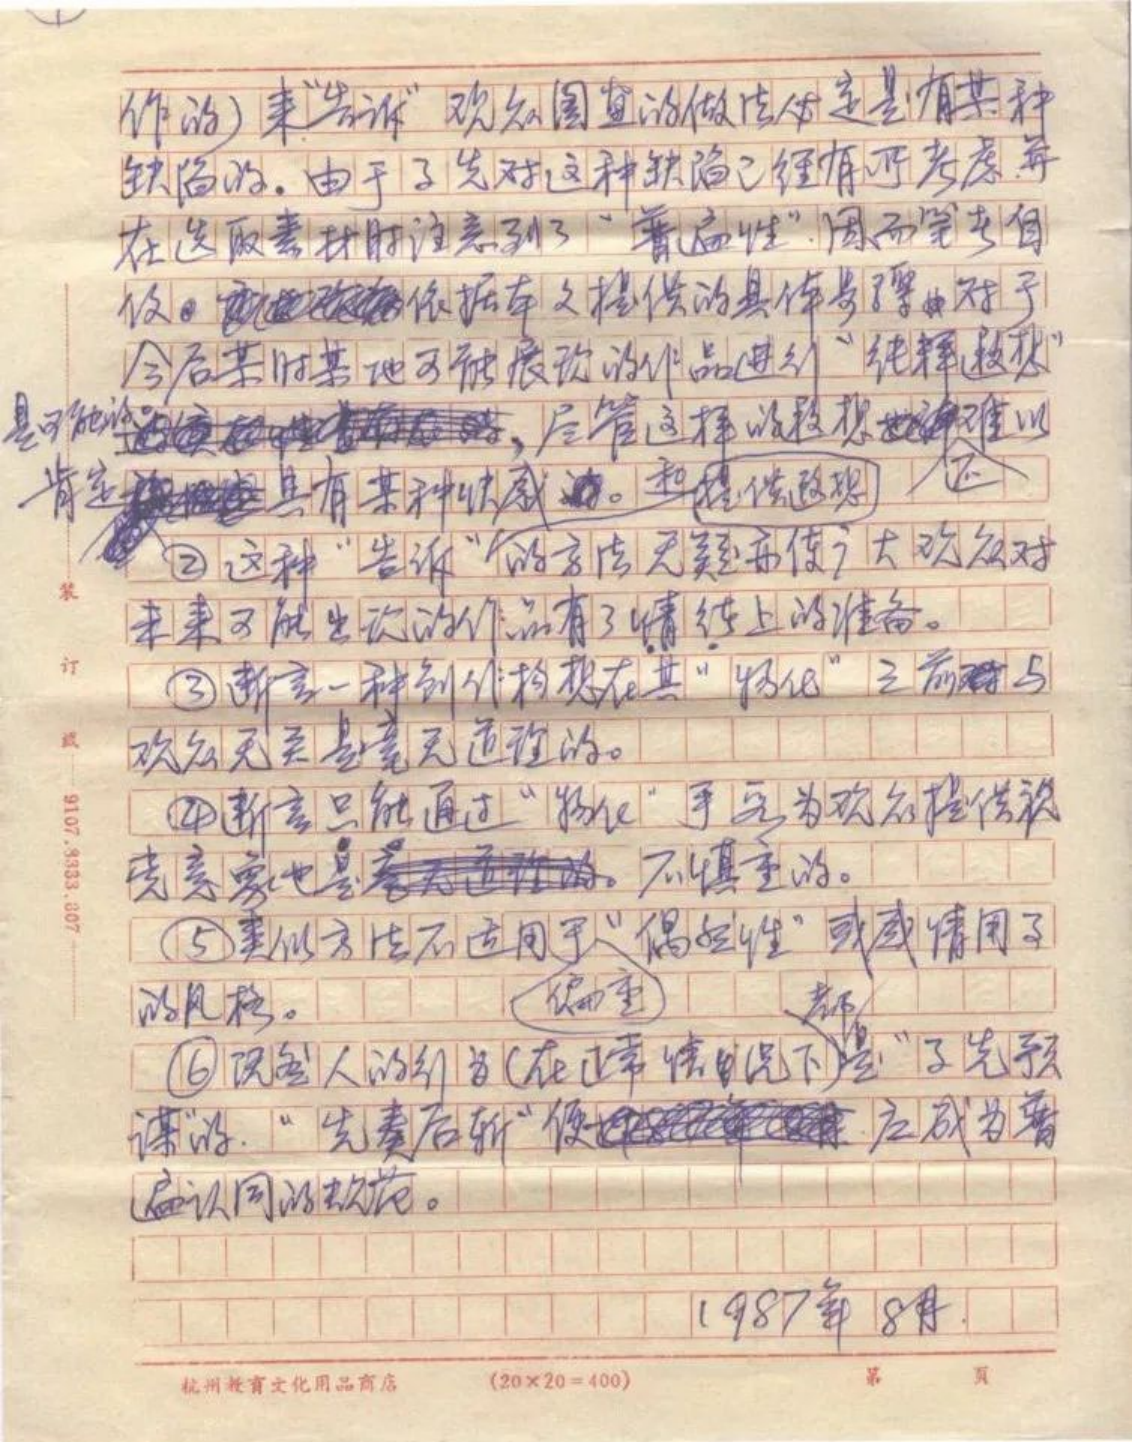 作的）来“告诉”观众图画的做法必定是有某种
缺陷的。由于事先对这种缺陷已经有所考虑并
在选取素材时注意到了“普遍性”.因而笔者自
依据本文提供的具体步骤 对于
今后某时某地可能展现的作品进行“纯粹设想”
是可能的。，尽管这样的设想 难以
肯定具有某种快感。 提供设想 还
②这种“告诉”的方法无疑亦使广大观众对
未来可能出现的作品有了情绪上的准备。
③断言一种创作构想在其“物化”之前与
观众无关是毫无道理的。
④断言只能通过“物化”手段为观众提供视
觉意象也是 不慎重的。
⑤类似方法不适用于“偶然性”或感情用事
偏重
的风格。
都
⑥既然人的行为（在正常情况下）是“事先预
谋”的.“先奏后斩”便 应成为普
遍认同的规范。
1987年8月.
装
订
线
9107.8333.807
杭州教育文化用品商店 (20×20=400) 第 页